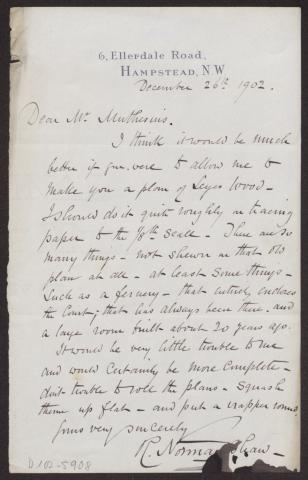 6, Ellerdale Road,
HAMPSTEAD, N.W
December 26th 1902.
Dear Mr. Muthesius.
I think it would be much
better if you were to allow me to
make you a plan of Leyes Wood -
I should do it quite roughly on tracing
paper to the 1/8th scale - There are so
many things - not shewn on that old
plan at all - at least some things -
Such as a fernery - that entirely encloses
the Court; that has always been there. and
a large room built about 20 years ago.
It would be very little trouble to me
and would certainly be more complete -
don't trouble to role the plans - squash
them up flat - and put a wrapper round
Yours very sincerely
R. Norman Shaw -
D 102-5908